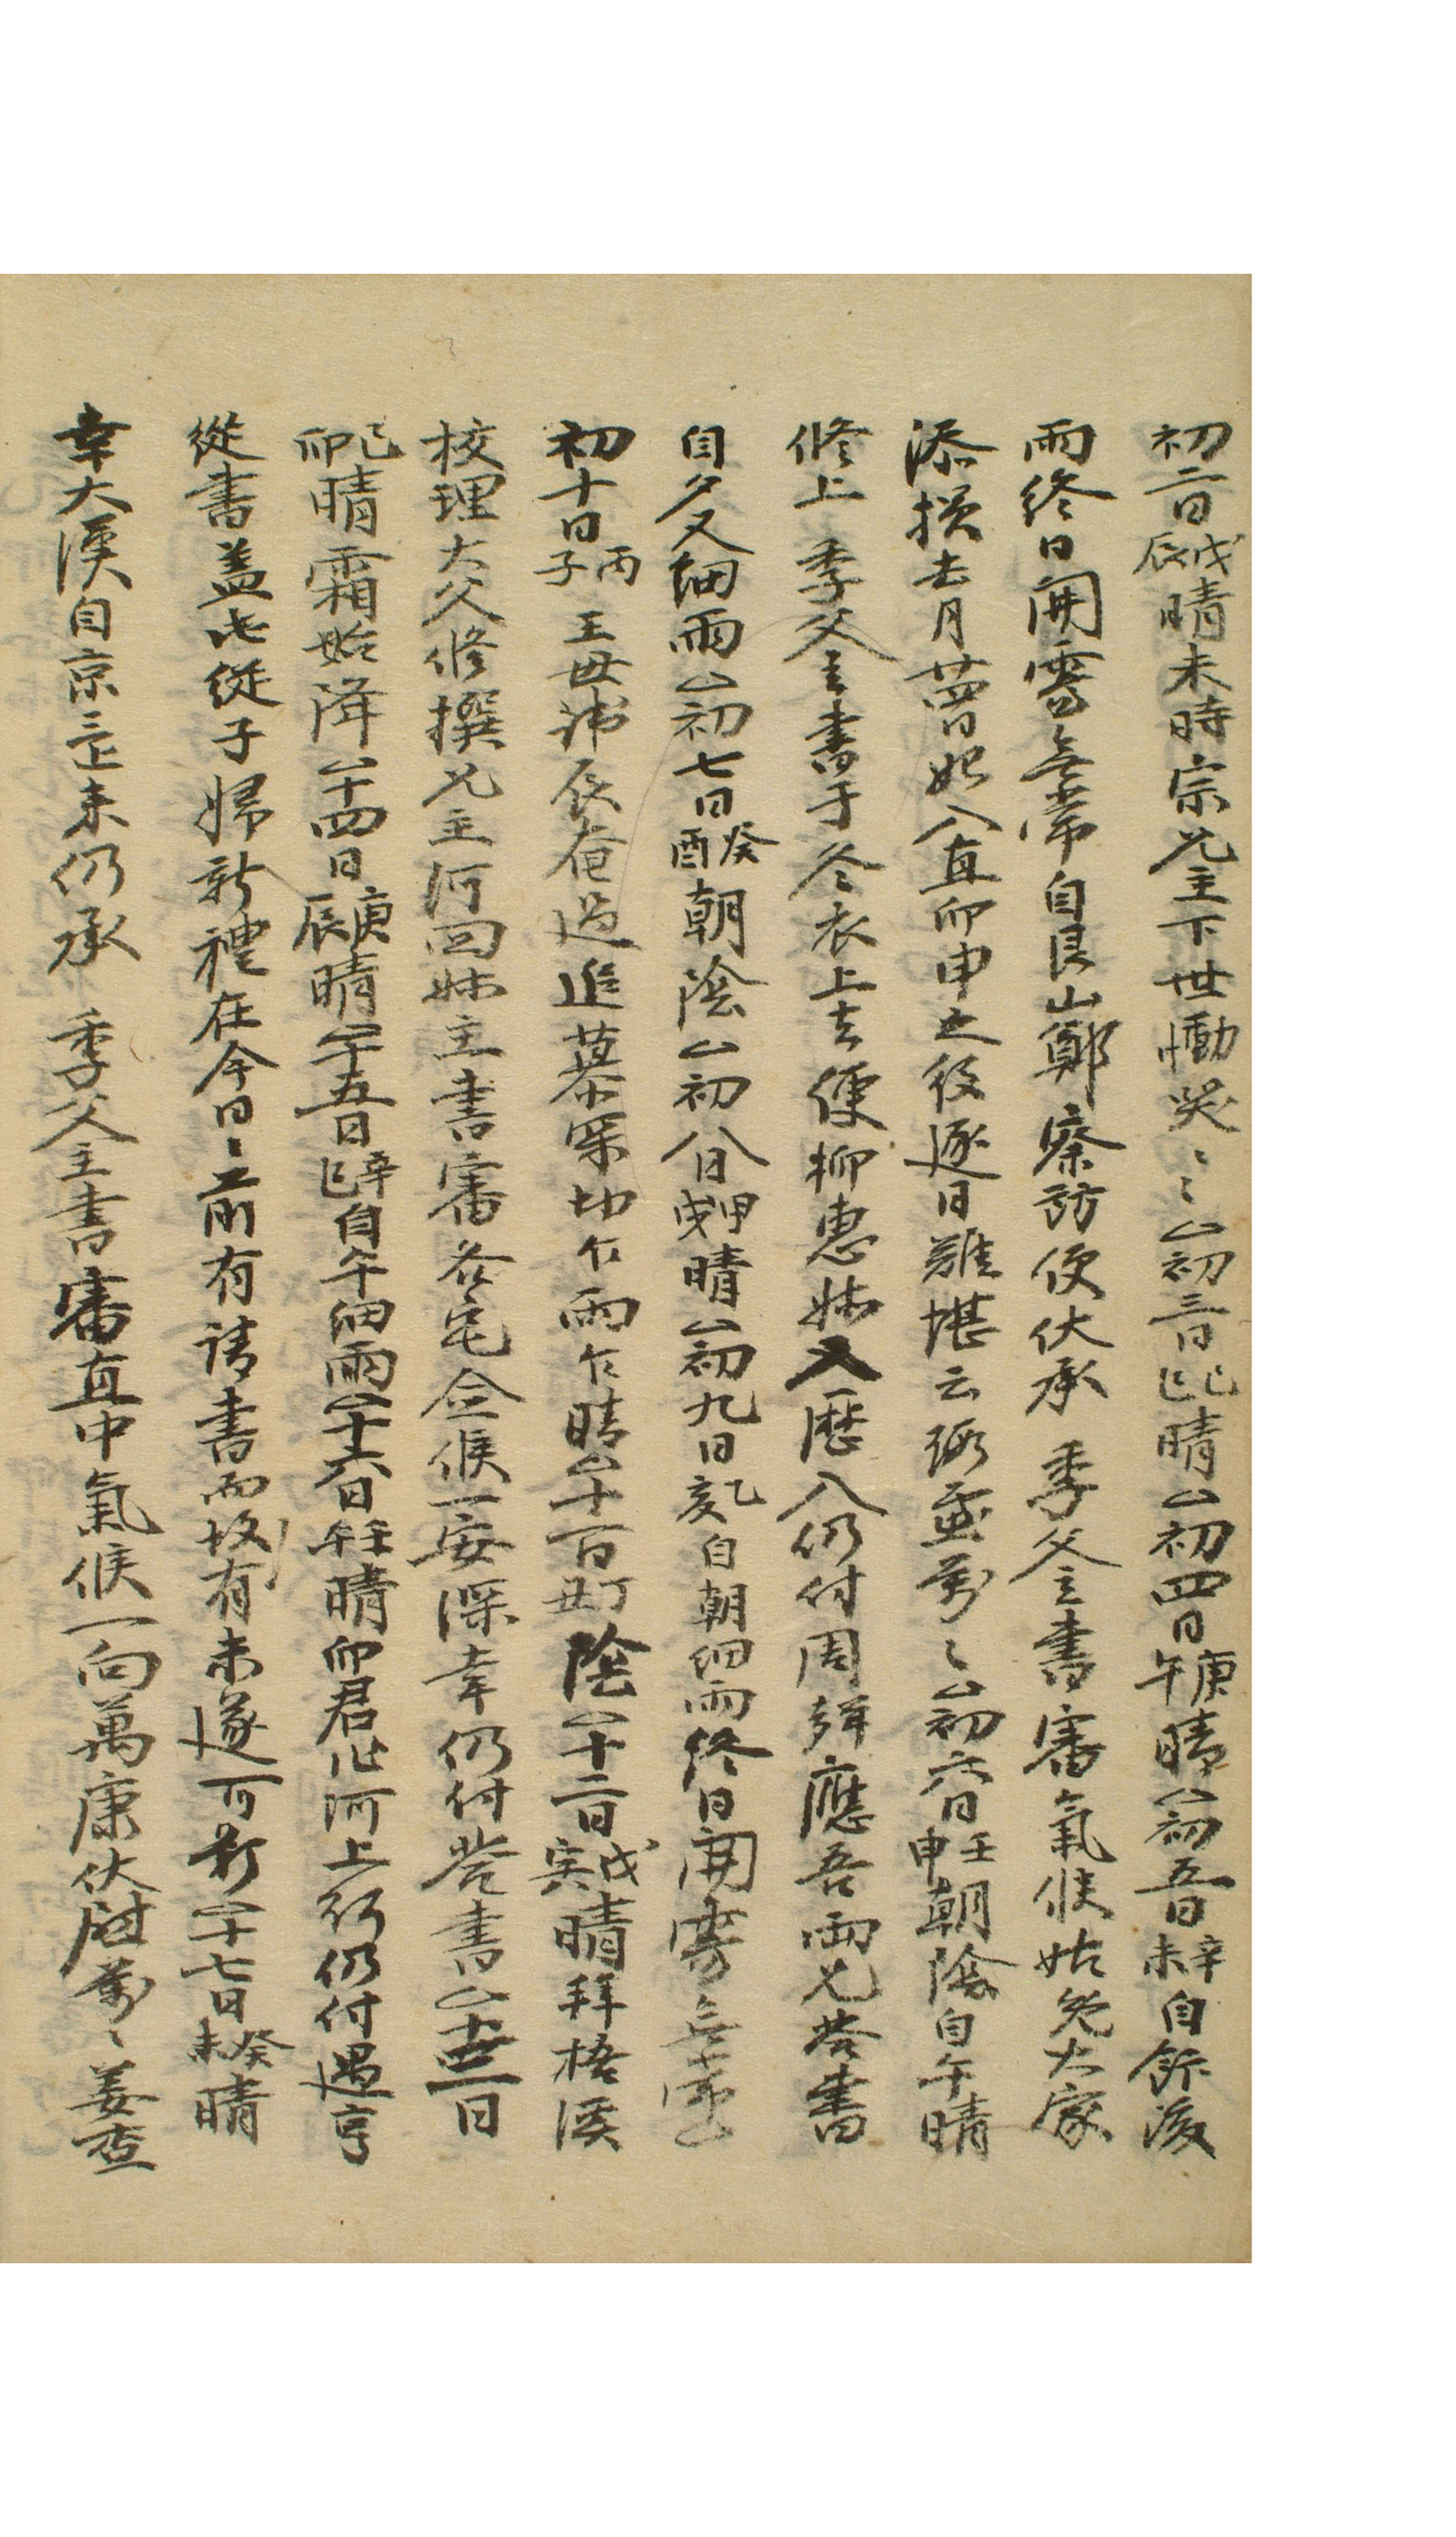 初二日戊辰晴未時宗兄主下世慟哭〻〻△初三日己巳晴△初四日庚午晴△初五日辛未自飯後
雨終日開霽無常自艮山鄭察訪便伏承 季父主書審氣候姑免大家
添損去月 日始入直卯申之役逐日難堪云 〻△初六日壬申朝陰自午晴
修上 季父主書于冬衣上去便柳惠姊入歷入仍付周 應吾兩兄答書
自夕又細雨△初七日癸酉朝陰△初八日甲戌晴△初九日乙亥自朝細雨終日開霽無常△
初十日丙子 王母諱辰奄過追慕罙切乍雨乍晴△十一日丁丑陰△十二日戊寅晴拜梧溪
校理大父修撰兄主河回姊主書審各宅僉候一安深幸仍付答書△十三日
己卯晴霜始降△十四日庚辰晴△十五日辛巳自午細雨△十六日壬午晴卯君作河上行仍付遇亨
從書盖此從子婦新禮在今日〻前有請書而故有未遂可歎△十七日癸未晴
幸大漢自京 來仍承 季父主書審直中氣候一向萬康伏慰萬〻姜查